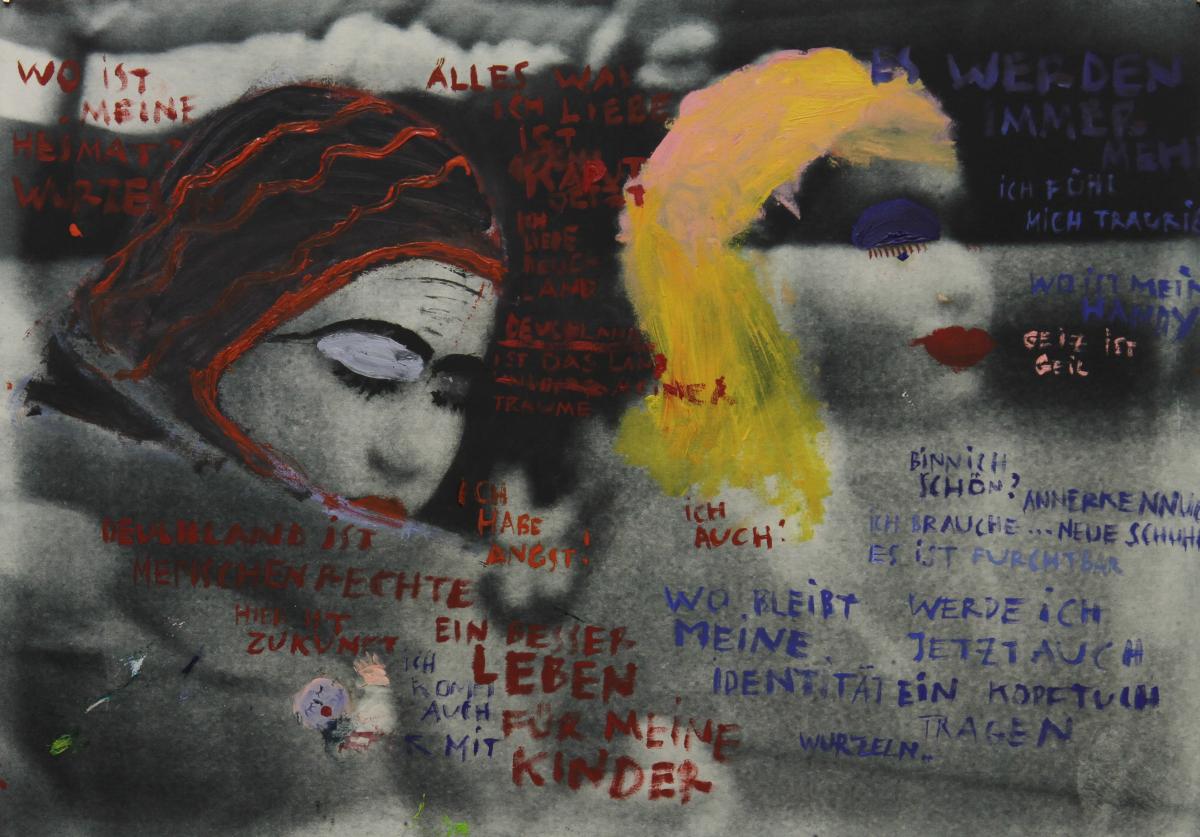 WO iST
MEINE
HEIMAT?
WURZELN
ALLES WAS
ICH LIEBE
IST
KAPUT
JETZT
ICH
LIEBE
DEUCH
LAND
DEUCHLAND
IST DAS LAND
MEINER
TRAUME
ICH
HABE
ANGST!
DEUCHLAND iST
MENSCHENRECHTE
HIER IST
ZUKUNFT
EIN BESSER
LEBEN
FÜR MEINE
KINDER
ICH
KOMM
AUCH
MIT
ICH
AUCH!
ES WERDEN
IMMER
MEHR
ICH FÜHL
MICH TRAURIG
WO IST MEIN
HANDY
GEIZ IST
GEIL
BINNICH
SCHÖN?
ANNERKENNUNG
ICH BRAUCHE ... NEUE SCHUHE
ES IST FURCHTBAR
WO BLEIBT
MEINE
IDENTITÄT
WERDE iCH
JETZT AUCH
EIN KOPFTUCH
TRAGEN
WURZELN..